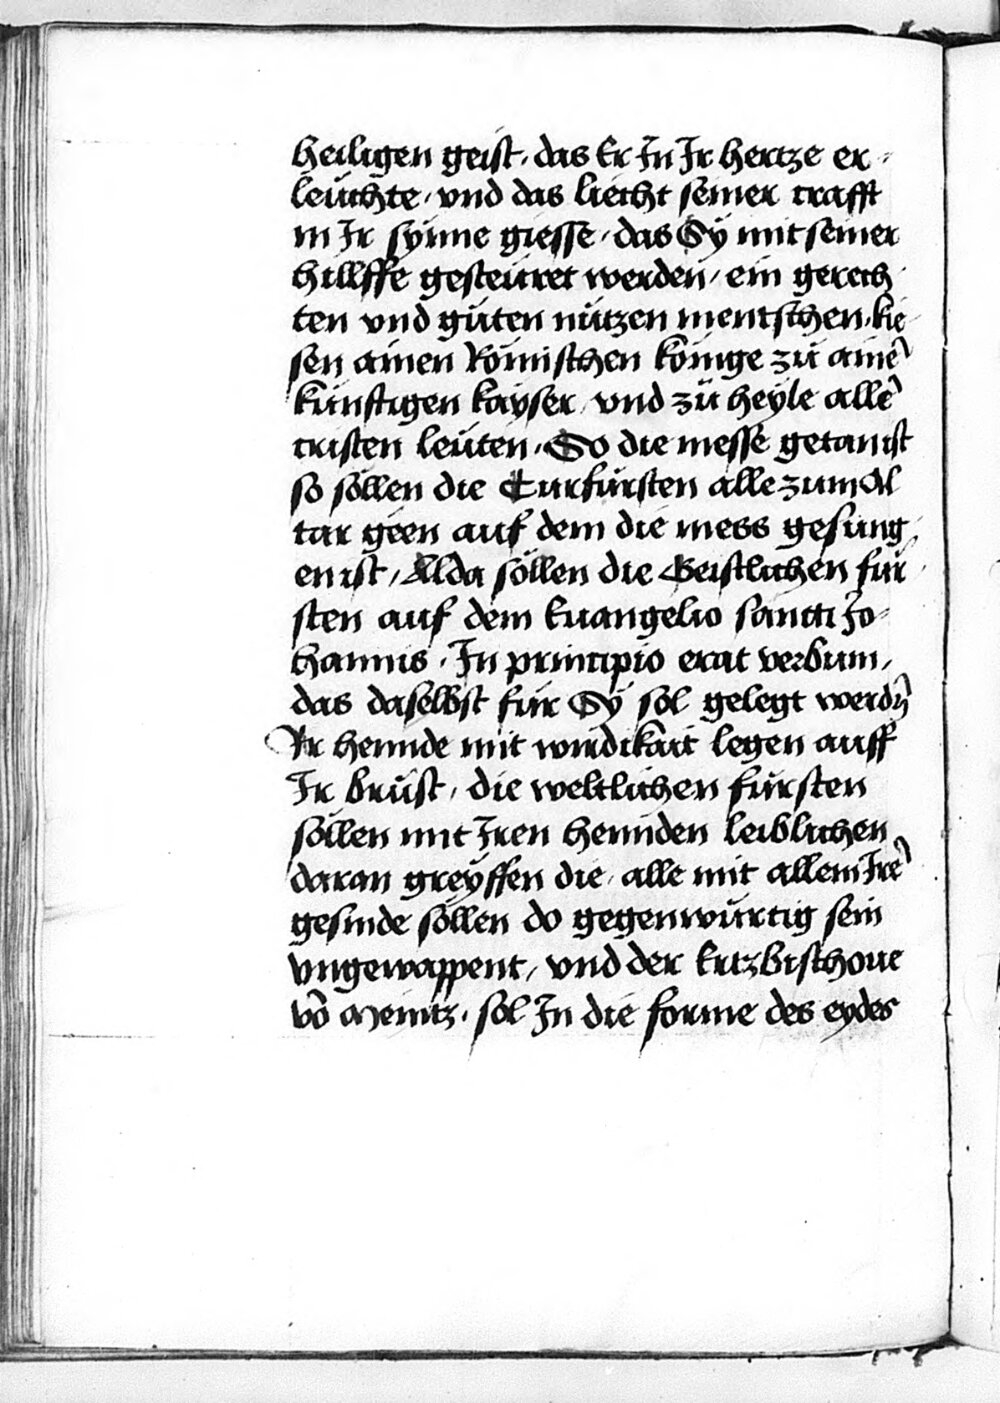 heiligen geist, das Er In Ir hertze er-
leuchte, vnd das liecht seiner crafft
in Ir synne giesse, das Sÿ mit seiner
hillffe gesteuret werden, ein gerech-
ten vnd gůten nützen mentschen, kie-
sen ainen Römischen künige zů ainē
künftigen kayser, vnd zů heyle allē
cristen leüten, So die messe getan ist
so söllen die Curfürsten alle zum Al
tar geen auf dem die mess gesung-
en ist, Allda söllen die Geistlichen für-
sten auf dem Euangelio sancti Jo-
hannis, In principio erat verbum,
das daselbst für Sÿ sol gelegt werdn̄
Ir hennde mit wirdikait legen auff
Ir brüst, die weltlichen fürsten
söllen mit Iren hennden leiblichen
daran greÿffen die, alle mit allem Irē
gesinde söllen do gegenwürtig sein
vngewappent, vnd der Ertzbischoue
vō Meintz, sol In die forme des eydes